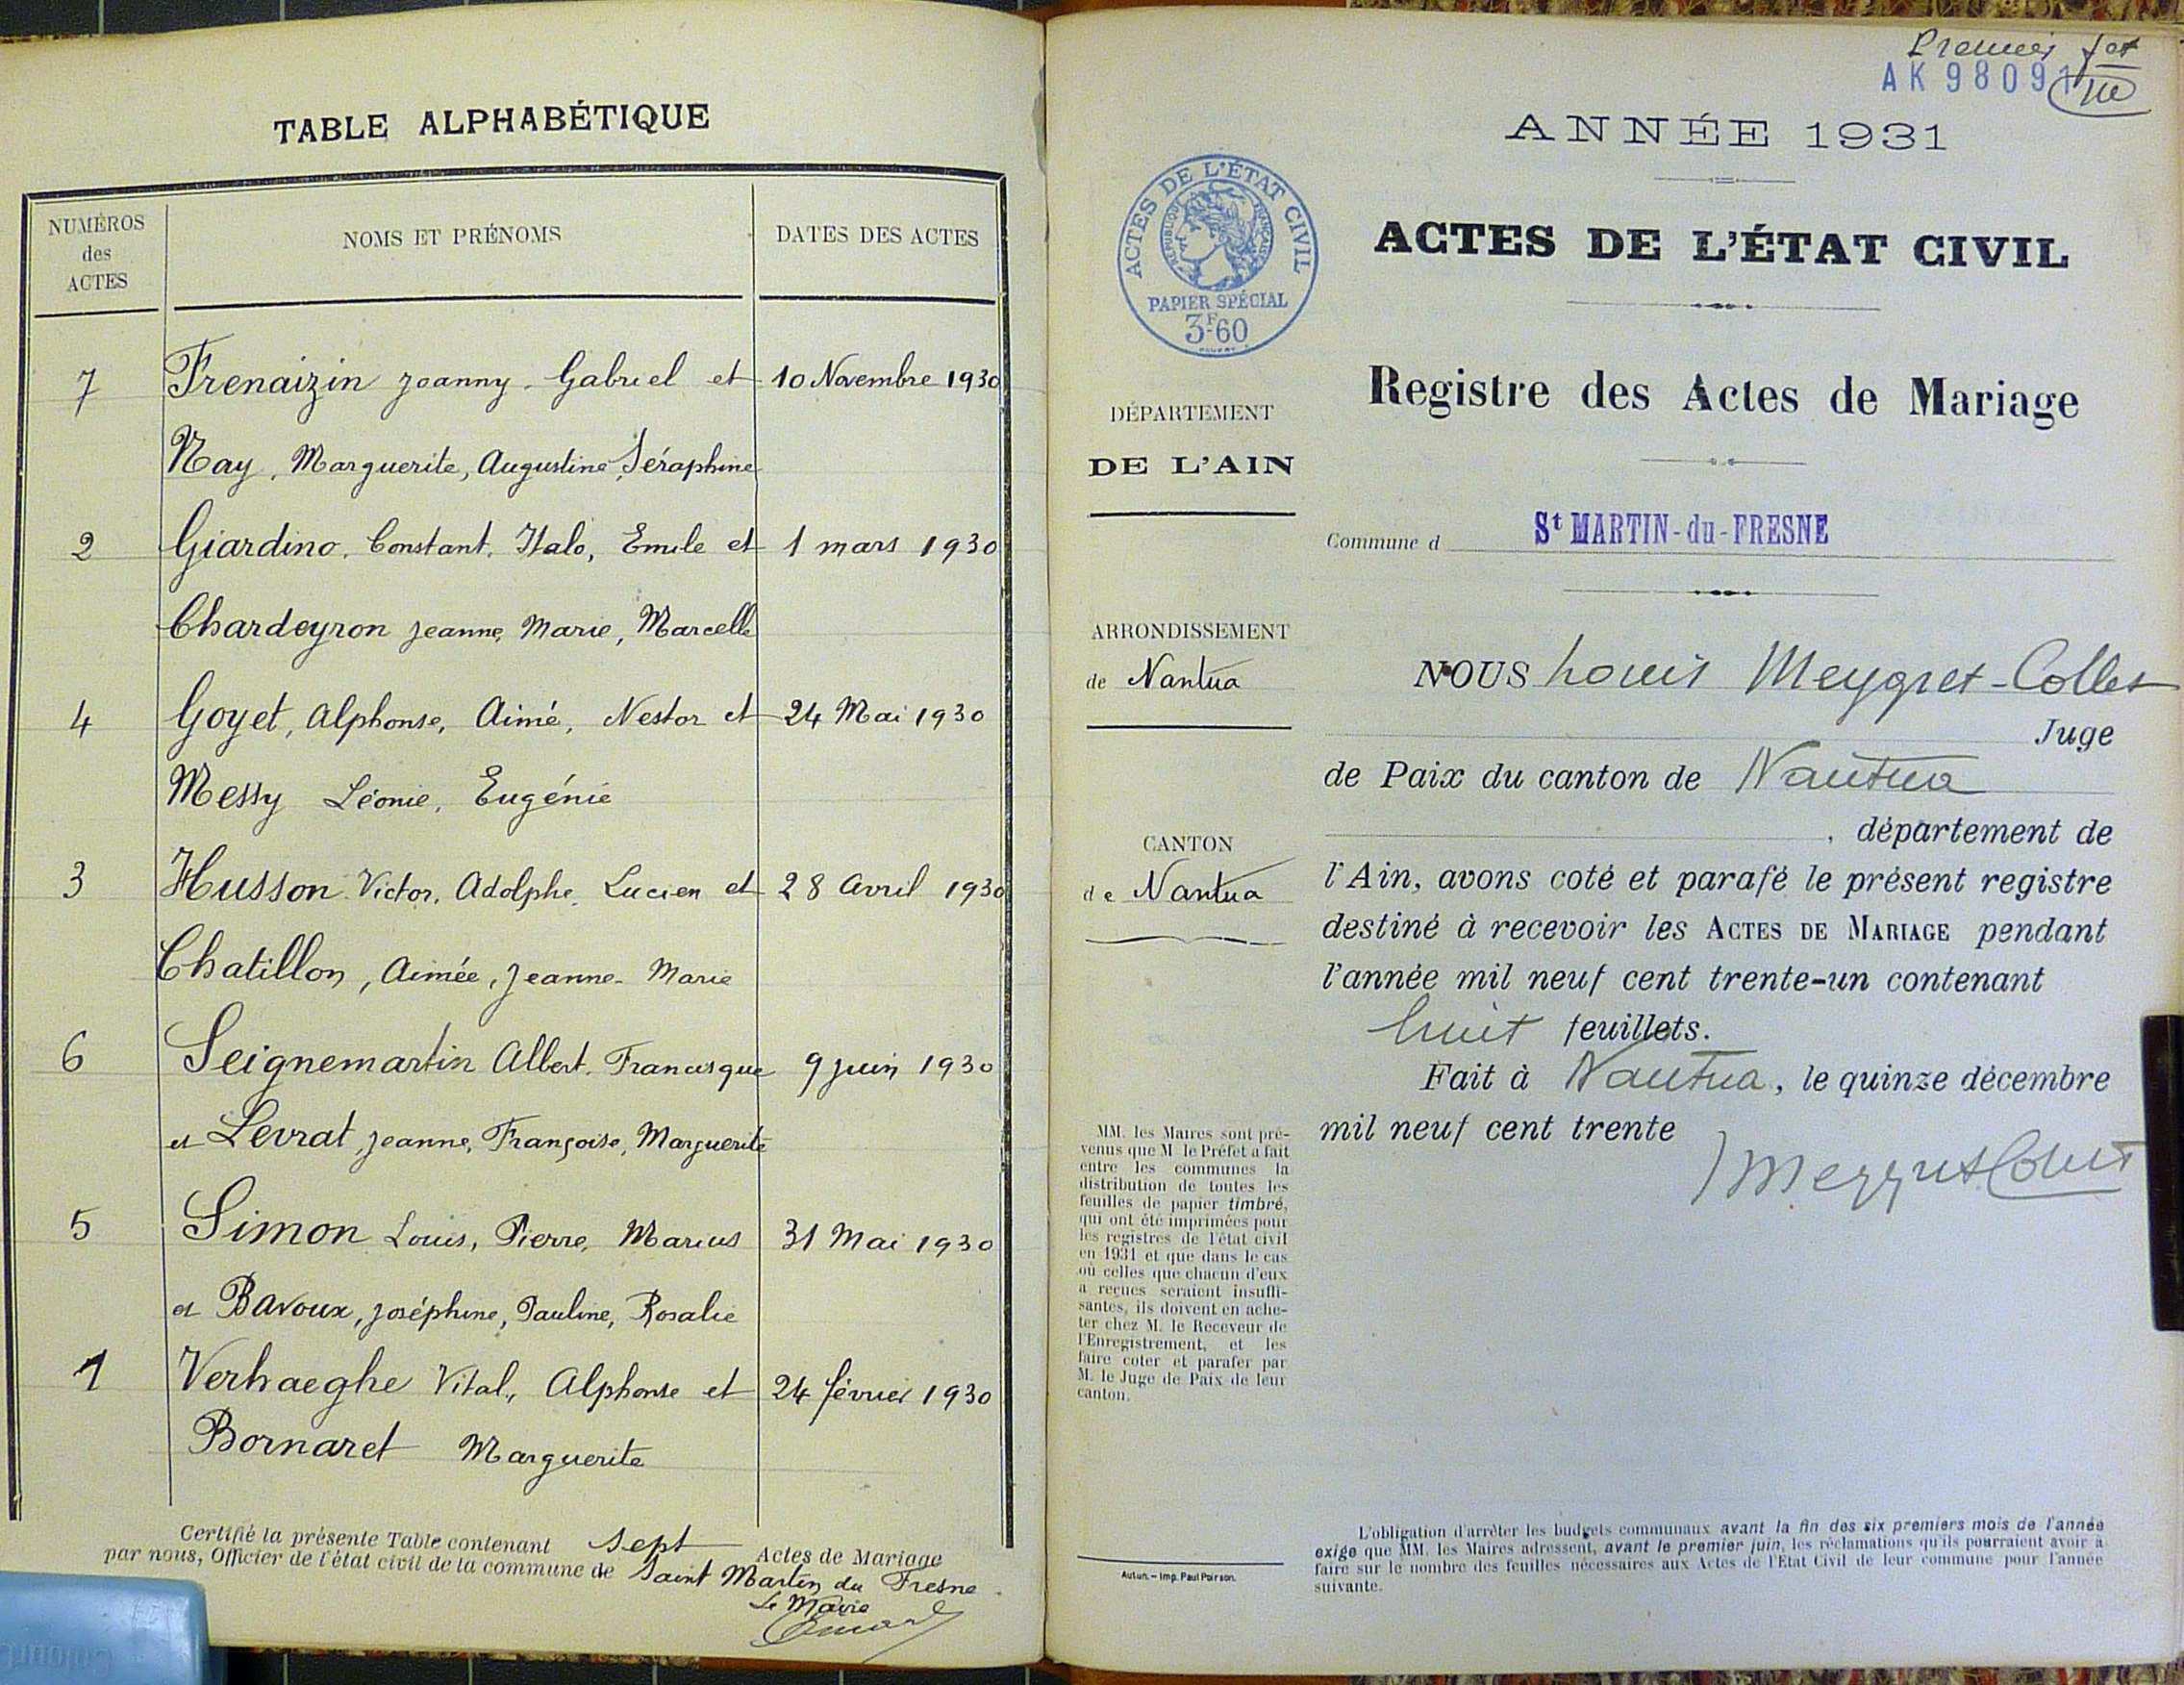 TABLE ALPHABÉTIQUE
NUMÉROS
des
ACTES
NOMS ET PRÉNOMS
DATES DES ACTES
7 Frenaizin Joanny Gabriel et 10 Novembre 1930
Nay, Marguerite, Augustine, Séraphine
2 Giardino, Constant, Italo, Emile et 1 mars 1930
Chardeyron Jeanne, Marie, Marcelle
4 Goyet, Alphonse, Aimé, Nestor et 24 Mai 1930
Messy Léonie, Eugénie
3 Husson Victor, Adolphe, Lucien et 28 Avril 1930
Chatillon, Aimée, Jeanne-Marie
6 Seignemartin Albert, Francisque 9 juin 1930
et Levrat, Jeanne, Françoise, Marguerite
5 Simon Louis, Pierre, Marius 31 Mai 1930
et Bavoux, Joséphine, Pauline, Rosalie
1 Verhaeghe Vital, Alphonse et 24 février 1930
Bornaret Marguerite
Certifié la présente Table contenant Sept Actes de Mariage
par nous, Officier de l'état civil de la commune de Saint Martin du Fresne
Le Maire
Premier
AK 98091
ANNÉE 1931
ACTES DE L'ÉTAT CIVIL
RÉPUBLIQUE FRANÇAISE
PAPIER SPÉCIAL
3F60
ACTES DE L'ÉTAT CIVIL
Registre des Actes de Mariage
DÉPARTEMENT
DE L'AIN
Commune d St MARTIN-du-FRESNE
ARRONDISSEMENT
de Nantua
CANTON
de Nantua
NOUS Louis Meygret-Collet
Juge
de Paix du canton de Nantua
, département de
l'Ain, avons coté et parafé le présent registre
destiné à recevoir les ACTES DE MARIAGE pendant
l'année mil neuf cent trente-un contenant
huit feuillets.
Fait à Nantua, le quinze décembre
mil neuf cent trente
MM. les Maires sont pré-
venus que M le Préfet a fait
entre les communes la
distribution de toutes les
feuilles de papier timbré,
qui ont été imprimées pour
les registres de l'état civil
en 1931 et que dans le cas
où celles que chacun d'eux
a reçues seraient insuffi-
santes, ils doivent en ache-
ter chez M. le Receveur de
l'Enregistrement, et les
faire coter et parafer par
M. le Juge de Paix de leur
canton.
Autun. — Imp. Paul Poirson.
L'obligation d'arrêter les budgets communaux avant la fin des six premiers mois de l'année
exige que MM. les Maires adressent, avant le premier juin, les réclamations qu'ils pourraient avoir à
faire sur le nombre des feuilles nécessaires aux Actes de l'Etat Civil de leur commune pour l'année
suivante.